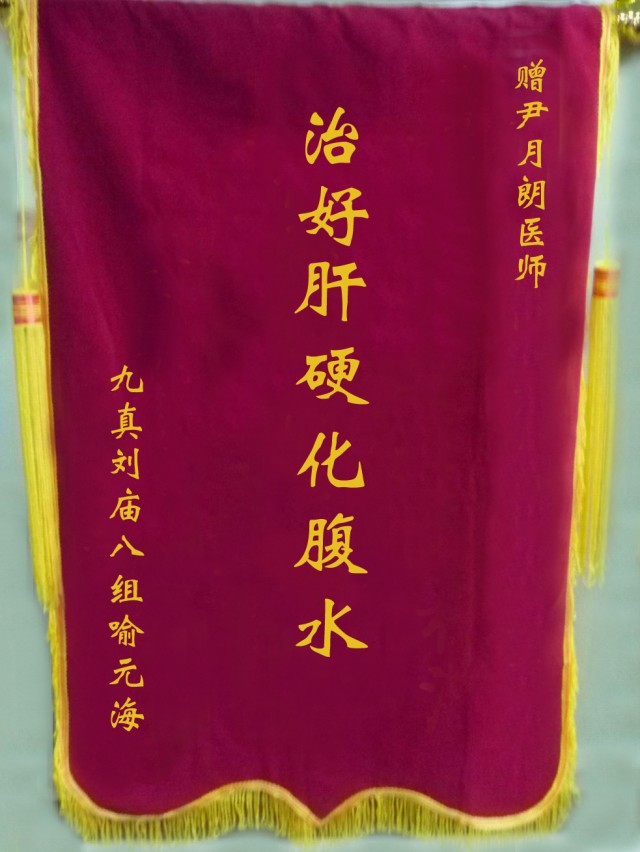 赠尹月朗医师
治好肝硬化腹水
九真刘庙八组喻元海